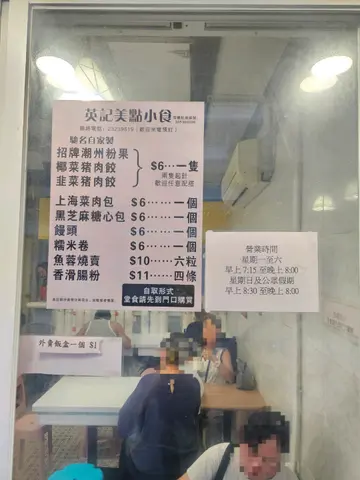 英記美點小食
馳名自家製
招牌潮州粉果
椰菜豬肉餃
韭菜豬肉餃
$6…一隻
兩隻起計
歡迎任意配搭
上海菜肉包 $6……一個
黑芝麻糖心包 $6……一個
饅頭 $6……一個
糯米卷 $6……一個
魚蓉燒賣 $10……六粒
香滑腸粉 $11……四條
自取形式
堂食請先到門口購買
外賣飯盒一個 $1
營業時間
星期一至六
早上 7:15 至晚上 8:00
星期日及公眾假期
早上 8:30 至晚上 8:00